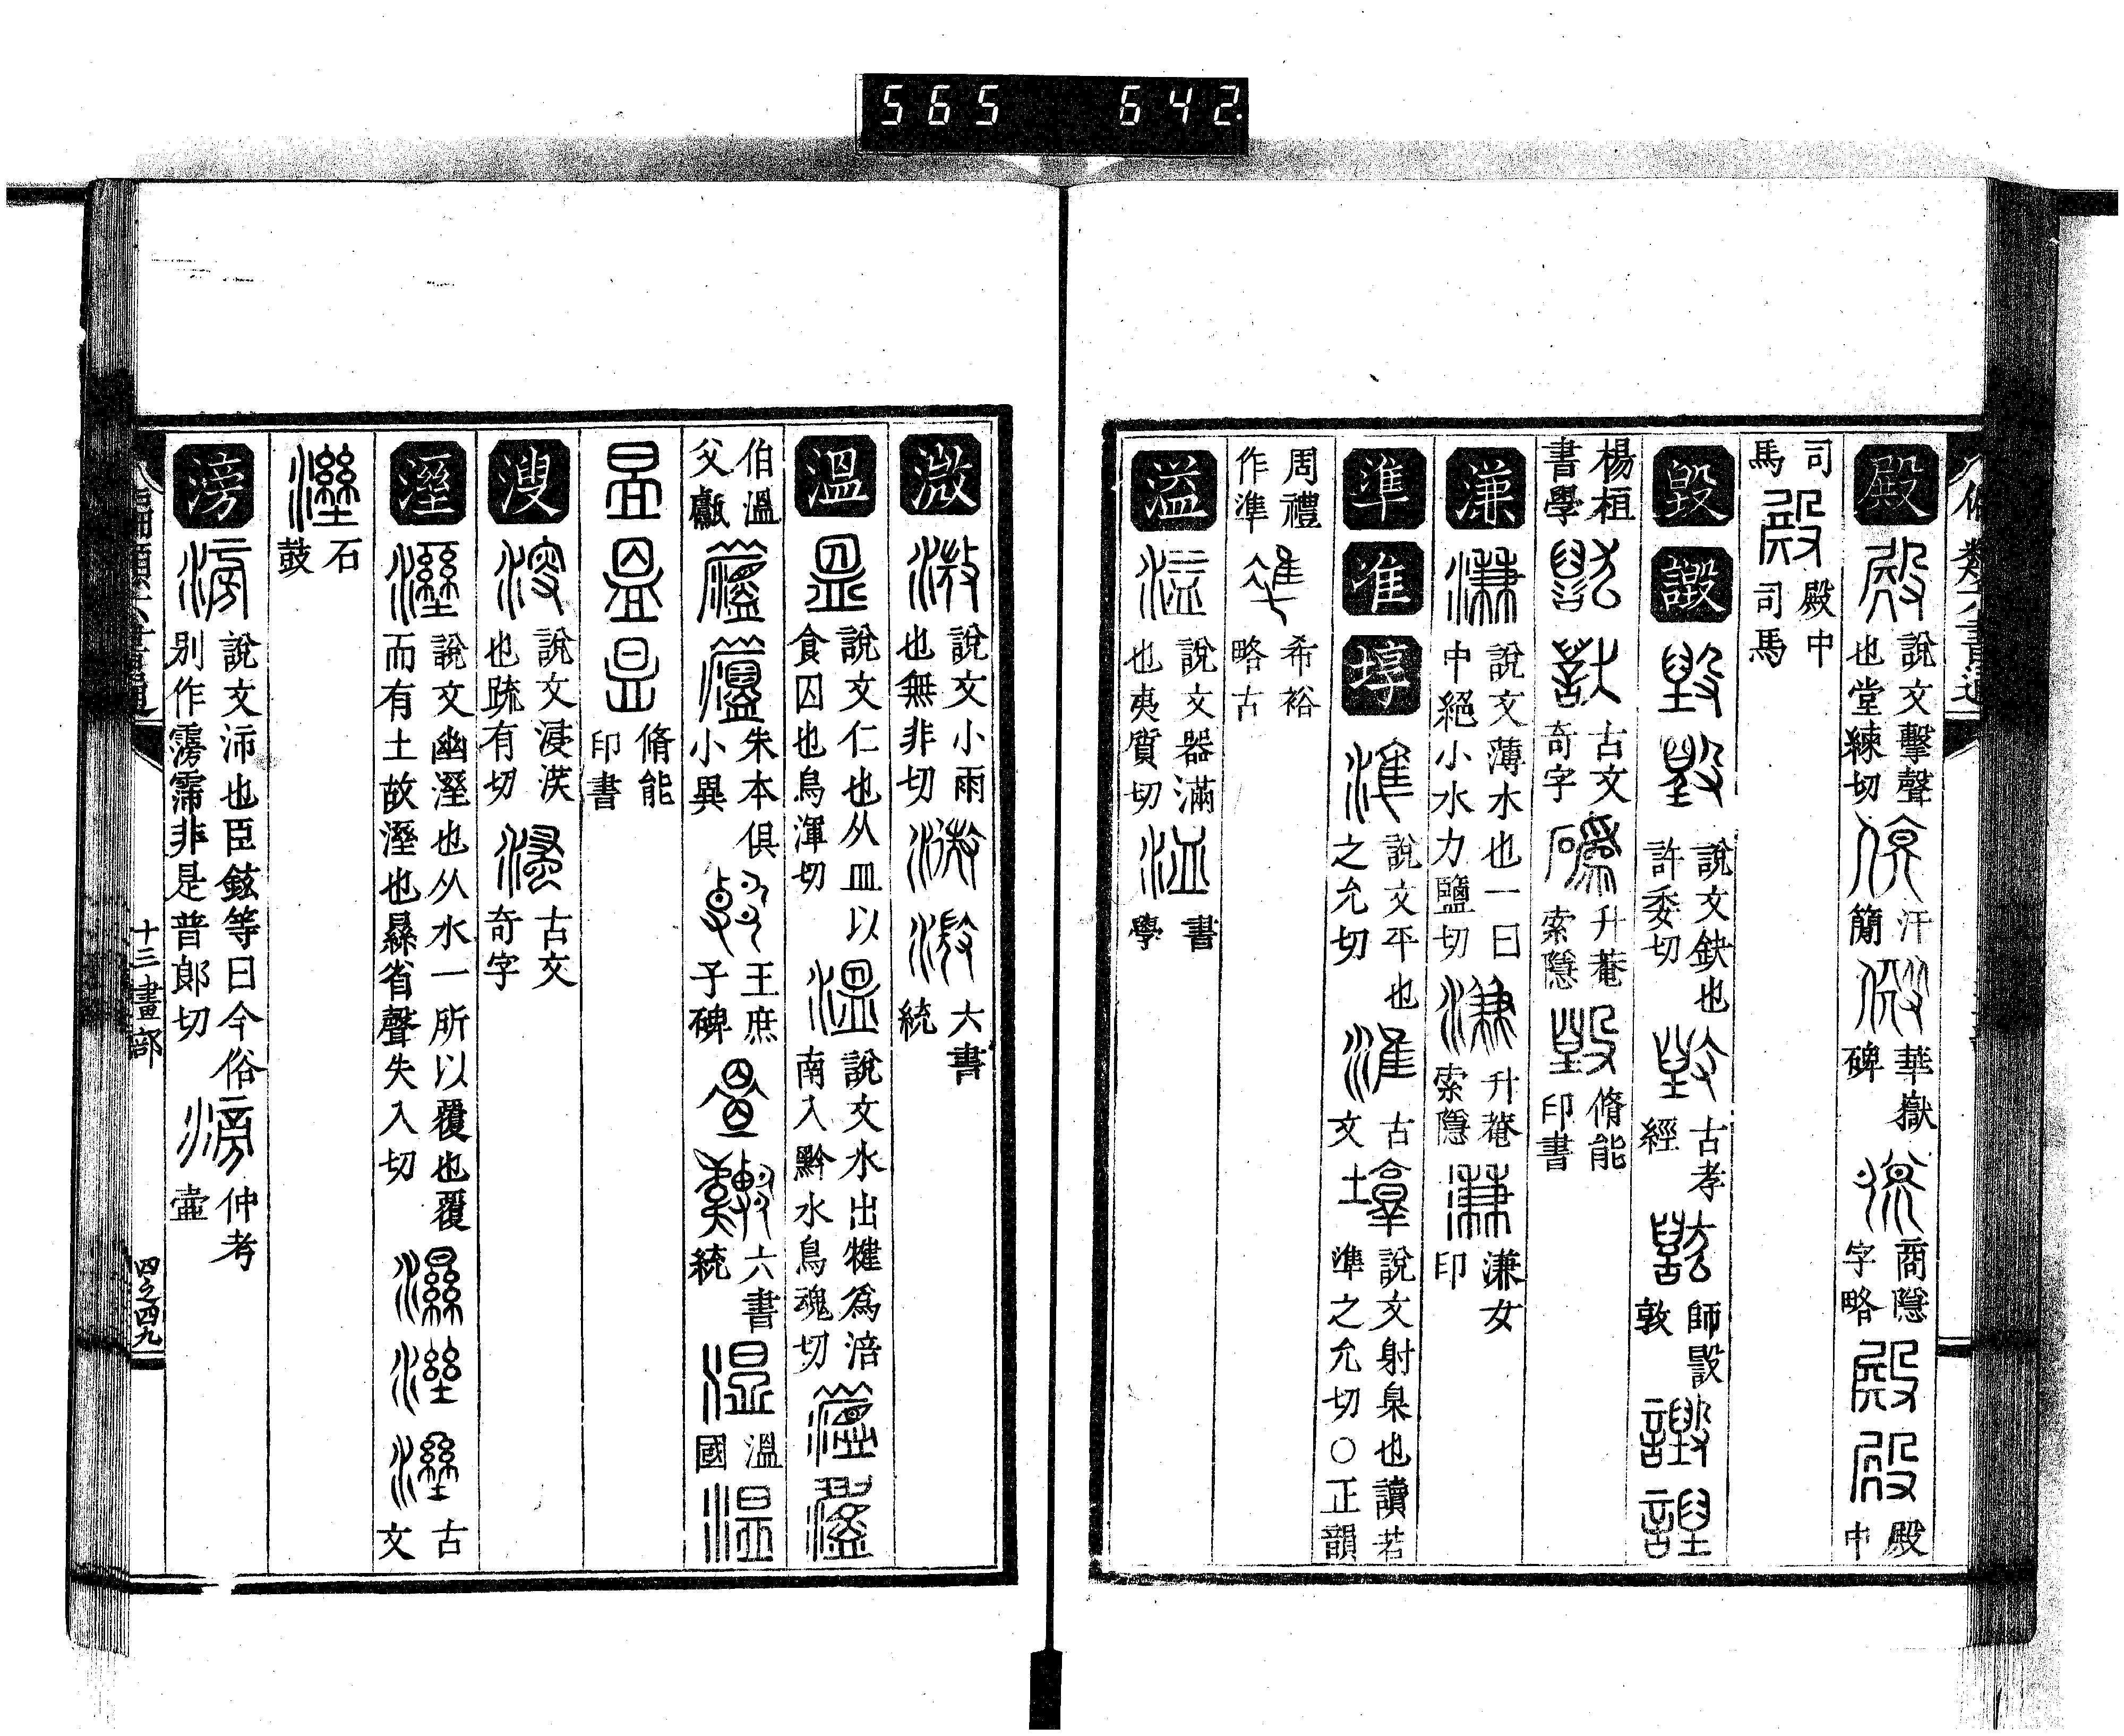 565 642
殿 說文擊聲也堂練切 汗簡 華嶽碑 商隱字略 殿中
司馬 殿中司馬
毀 譭 說文缺也許委切 古孝經 師毀敦
楊桓書學 古文奇字 升菴索隱 脩能印書
溓 說文薄水也一曰中絕小水力鹽切 升菴索隱 溓女印
準 准 埻 說文平也之允切 古文 說文射臬也讀若準之允切○正韻
周禮作準 希裕略古
溢 說文器滿也夷質切 書學
溦 說文小雨也無非切 六書統
溫 說文仁也从皿以食囚也烏渾切 說文水出犍爲涪南入黔水烏魂切
伯溫父甗 朱本俱小異 王庶子碑 六書統 溫國
脩能印書
溲 說文浸㳿也疏有切 古文奇字
溼 說文幽溼也从水一所以覆也覆而有土故溼也㬎省聲失入切 古文
石鼓
滂 說文沛也臣鉉等曰今俗別作霶霈非是普郎切 仲考壺
十三畫部
四之四九